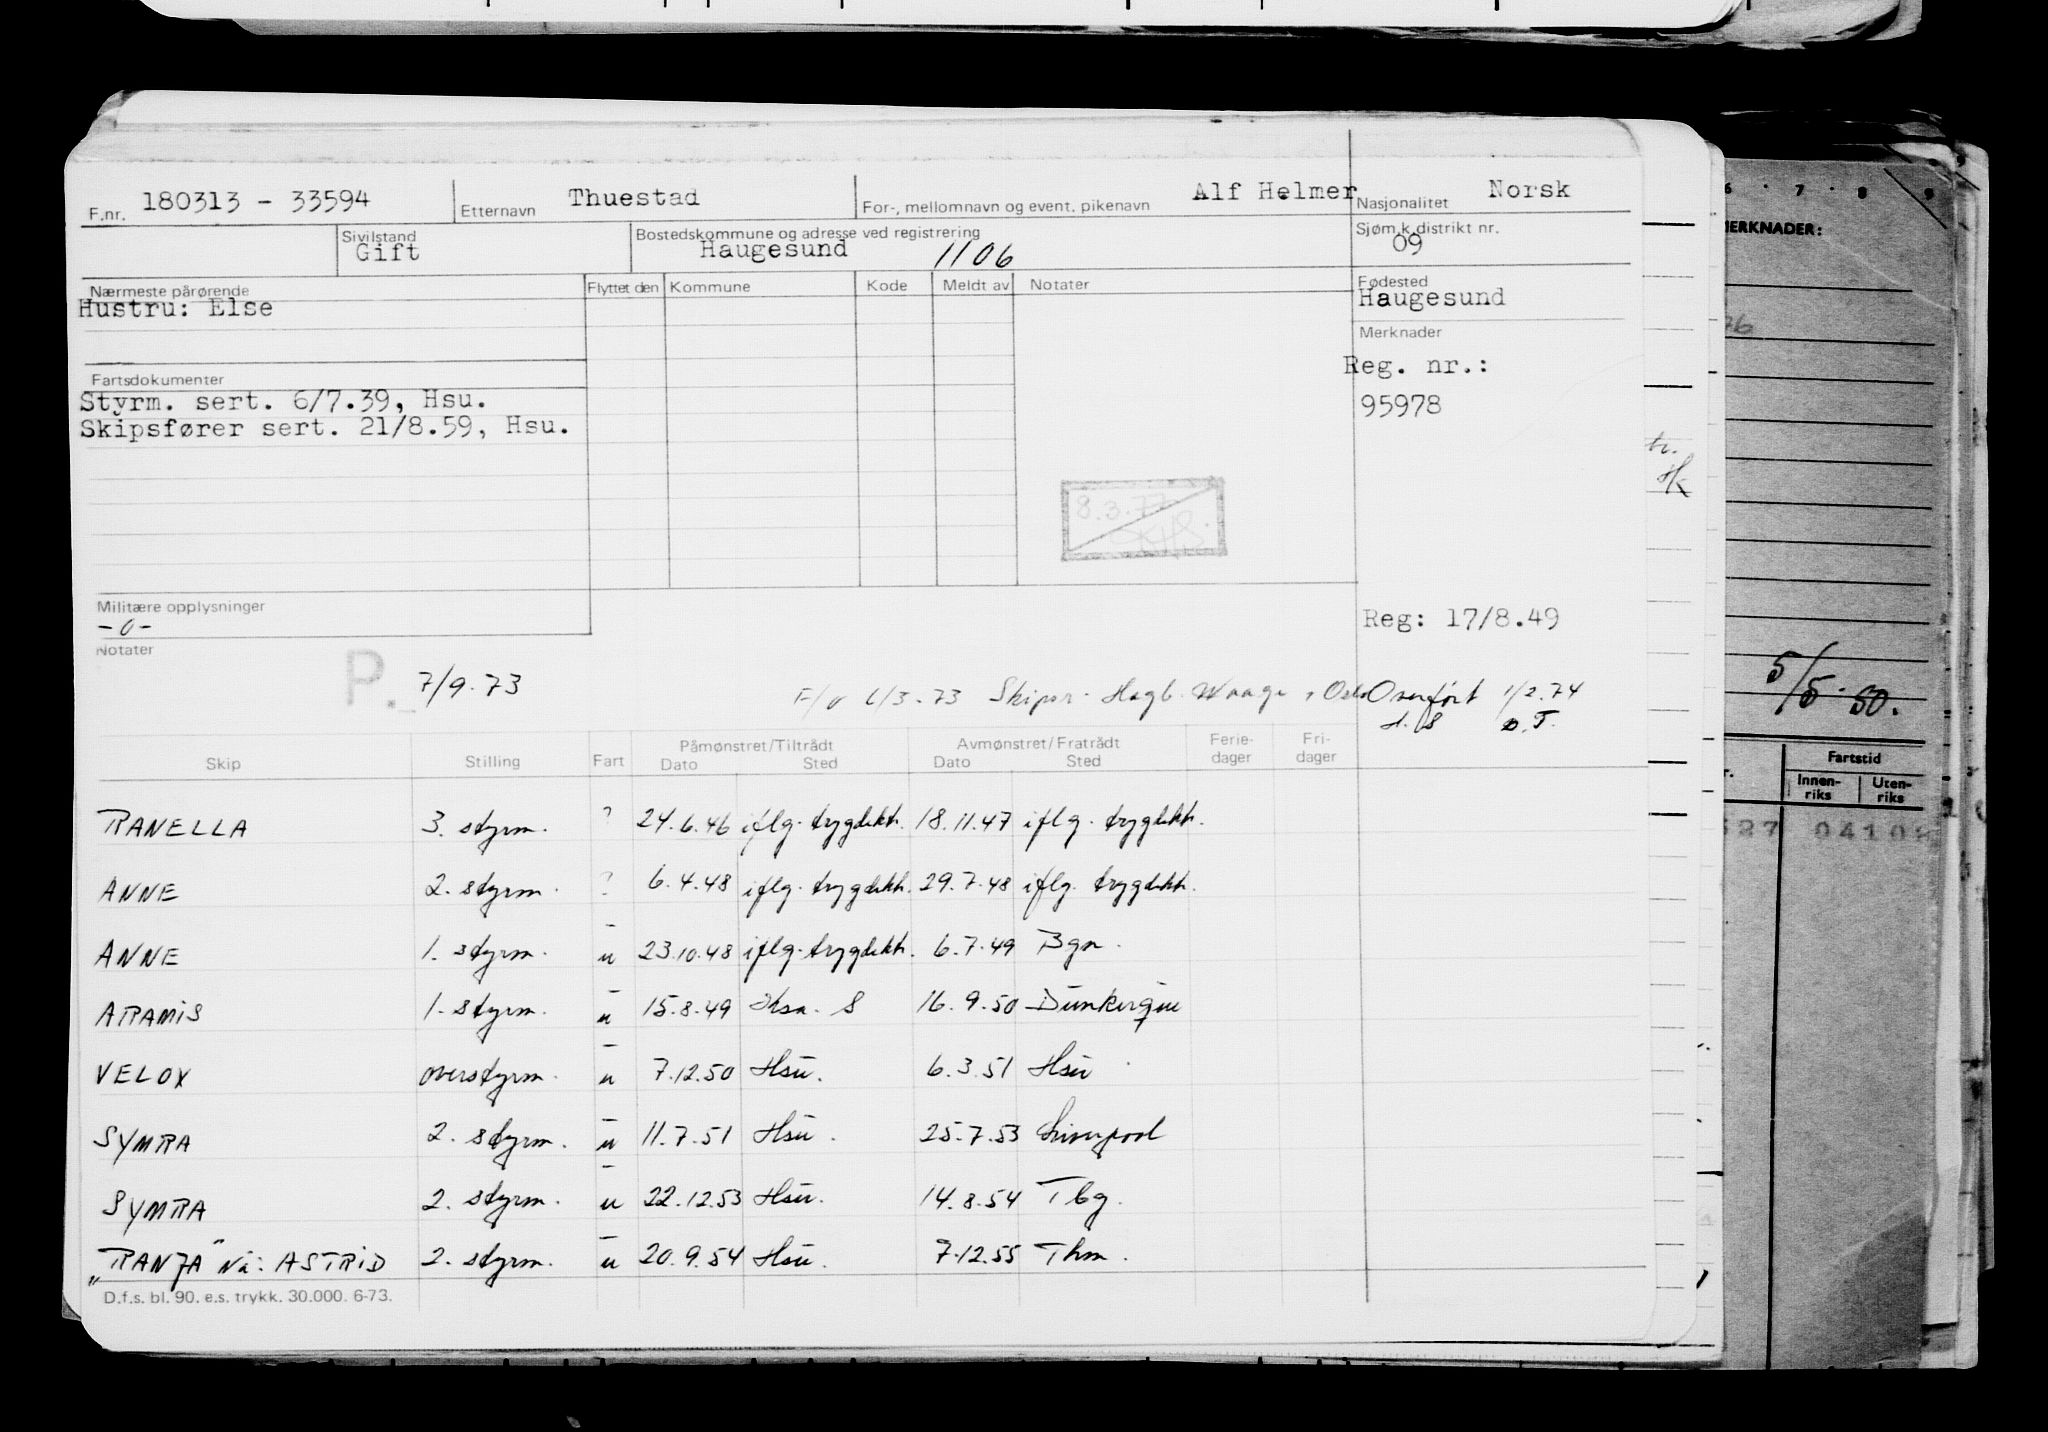 F.nr. 180313 - 33594 Etternavn Thuestad For-, mellomnavn og event. pikenavn Alf Helmer Nasjonalitet Norsk
Sivilstand Gift Bostedskommune og adresse ved registrering Haugesund 1106 Sjøm.k.distrikt nr. 09
Nærmeste pårørende Flyttet den Kommune Kode Meldt av Notater Fødested
Hustru: Else Haugesund
Merknader
Reg. nr.:
95978
Fartsdokumenter
Styrm. sert. 6/7.39, Hsu.
Skipsfører sert. 21/8.59, Hsu.
8.3.77
Militære opplysninger
-0-
Reg: 17/8.49
Notater
P. 7/9.73
Skipsr. Hagb. Waage, Oslo Overført 1/2.74
Skip Stilling Fart Påmønstret/Tiltrådt Dato Sted Avmønstret/Fratrådt Dato Sted Ferie-dager Fri-dager
RANELLA 3. styrm. ? 24.6.46 iflg. trygdekt. 18.11.47 iflg. trygdekt.
ANNE 2. styrm. ? 6.4.48 iflg. trygdekt. 29.7.48 iflg. trygdekt.
ANNE 1. styrm. u 23.10.48 iflg. trygdekt. 6.7.49 Bgn.
ARAMIS 1. styrm. u 15.8.49 16.9.50 Dunkerque
VELOX overstyrm. u 7.12.50 Hsu. 6.3.51 Hsu
SYMRA 2. styrm. u 11.7.51 Hsu. 25.7.53 Liverpool
SYMRA 2. styrm. u 22.12.53 Hsu. 14.8.54 Tbg.
"RANJA" Nå: ASTRID 2. styrm. u 20.9.54 Hsu. 7.12.55 Thm.
D.f.s. bl. 90. e.s. trykk. 30.000. 6-73.
6 . 7 . 8 . 9
MERKNADER:
5/5.50.
Fartstid
Innen-riks Uten-riks
527 0410